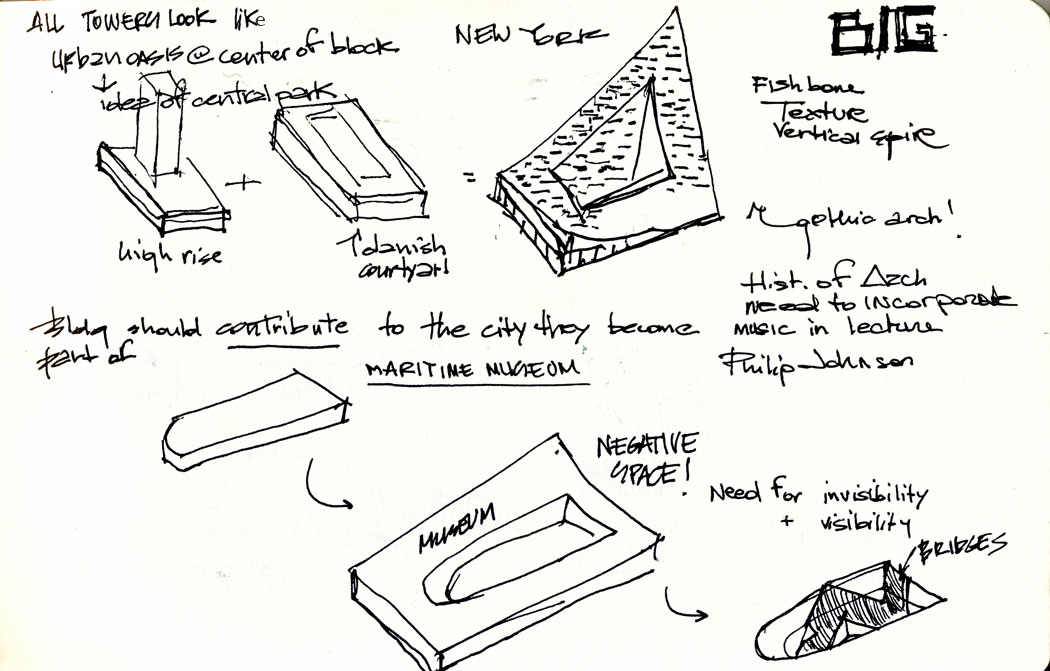 ALL TOWERS LOOK LIKE
URBAN OASIS @ center of block
idea of central park
NEW YORK
BIG
Fishbone
Texture
Vertical spire
+
=
high rise
danish
courtyard
gothic arch!
Hist. of Arch
need to INCORPORATE
MUSIC in lecture
Philip Johnson
Bldg should contribute to the city they become
part of
MARITIME MUSEUM
NEGATIVE
SPACE!
MUSEUM
Need for invisibility
+ visibility
BRIDGES